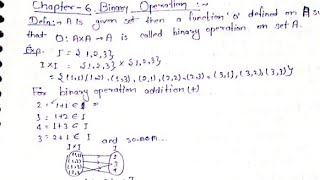 Chapter-6 Binary Operation :-
Defin:→ A is given set then a function 'o' defined on A such
that O: A×A → A is called binary operation on set A.
Exp. I = {1,2,3}
I×I = {1,2,3} × {1,2,3}
= {(1,1), (1,2), (1,3), (2,1), (2,2), (2,3), (3,1), (3,2), (3,3)}
For binary operation addition (+)
2 = 1+1 ∈ I
3 = 1+2 ∈ I
4 = 1+3 ∈ I
3 = 2+1 ∈ I and so on...
I×I I
(1,1) 2
(1,2) 3
(1,3) 4